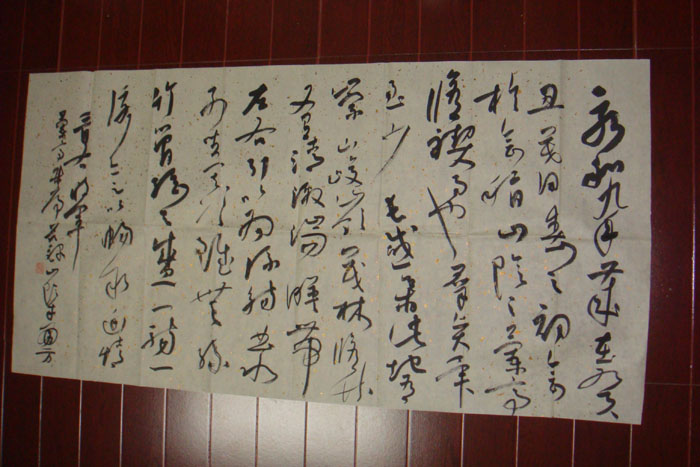 永和九年歲在癸
丑暮春之初會
於會稽山陰之蘭亭
脩禊事也羣賢畢
至少長咸集此地有
崇山峻領茂林脩竹
又有清激湍暎帶
左右引以為流觴曲水
列坐其次雖無絲
竹管弦之盛一觴一
詠亦足以暢敘幽情